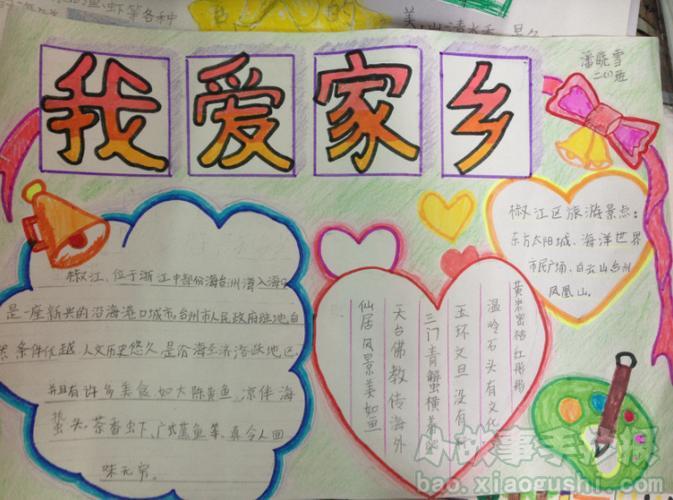 鱼.虾等各种
的
我爱家乡
潘晓雪
班
椒江、位于浙江中部份海台州湾入海口
是一座新兴的沿海港口城市。台州市人民政府驻地,自
条件优越,人文历史悠久,是沿海经济活跃地区,
并且有许多美食,如大陈黄鱼,凉伴海
蜇头,茶香虾、广式蒸鱼等,真令人回
味无穷。
黄岩蜜橘红彤彤
温岭石头有文化
玉环文旦没有
三门青蟹横着
天台佛教传海外
仙居风景美如画
椒江区旅游景点:
东方太阳城、海洋世界
市民广场、白云山台州
凤凰山。
小故事手抄报
bao.xiaogushi.com